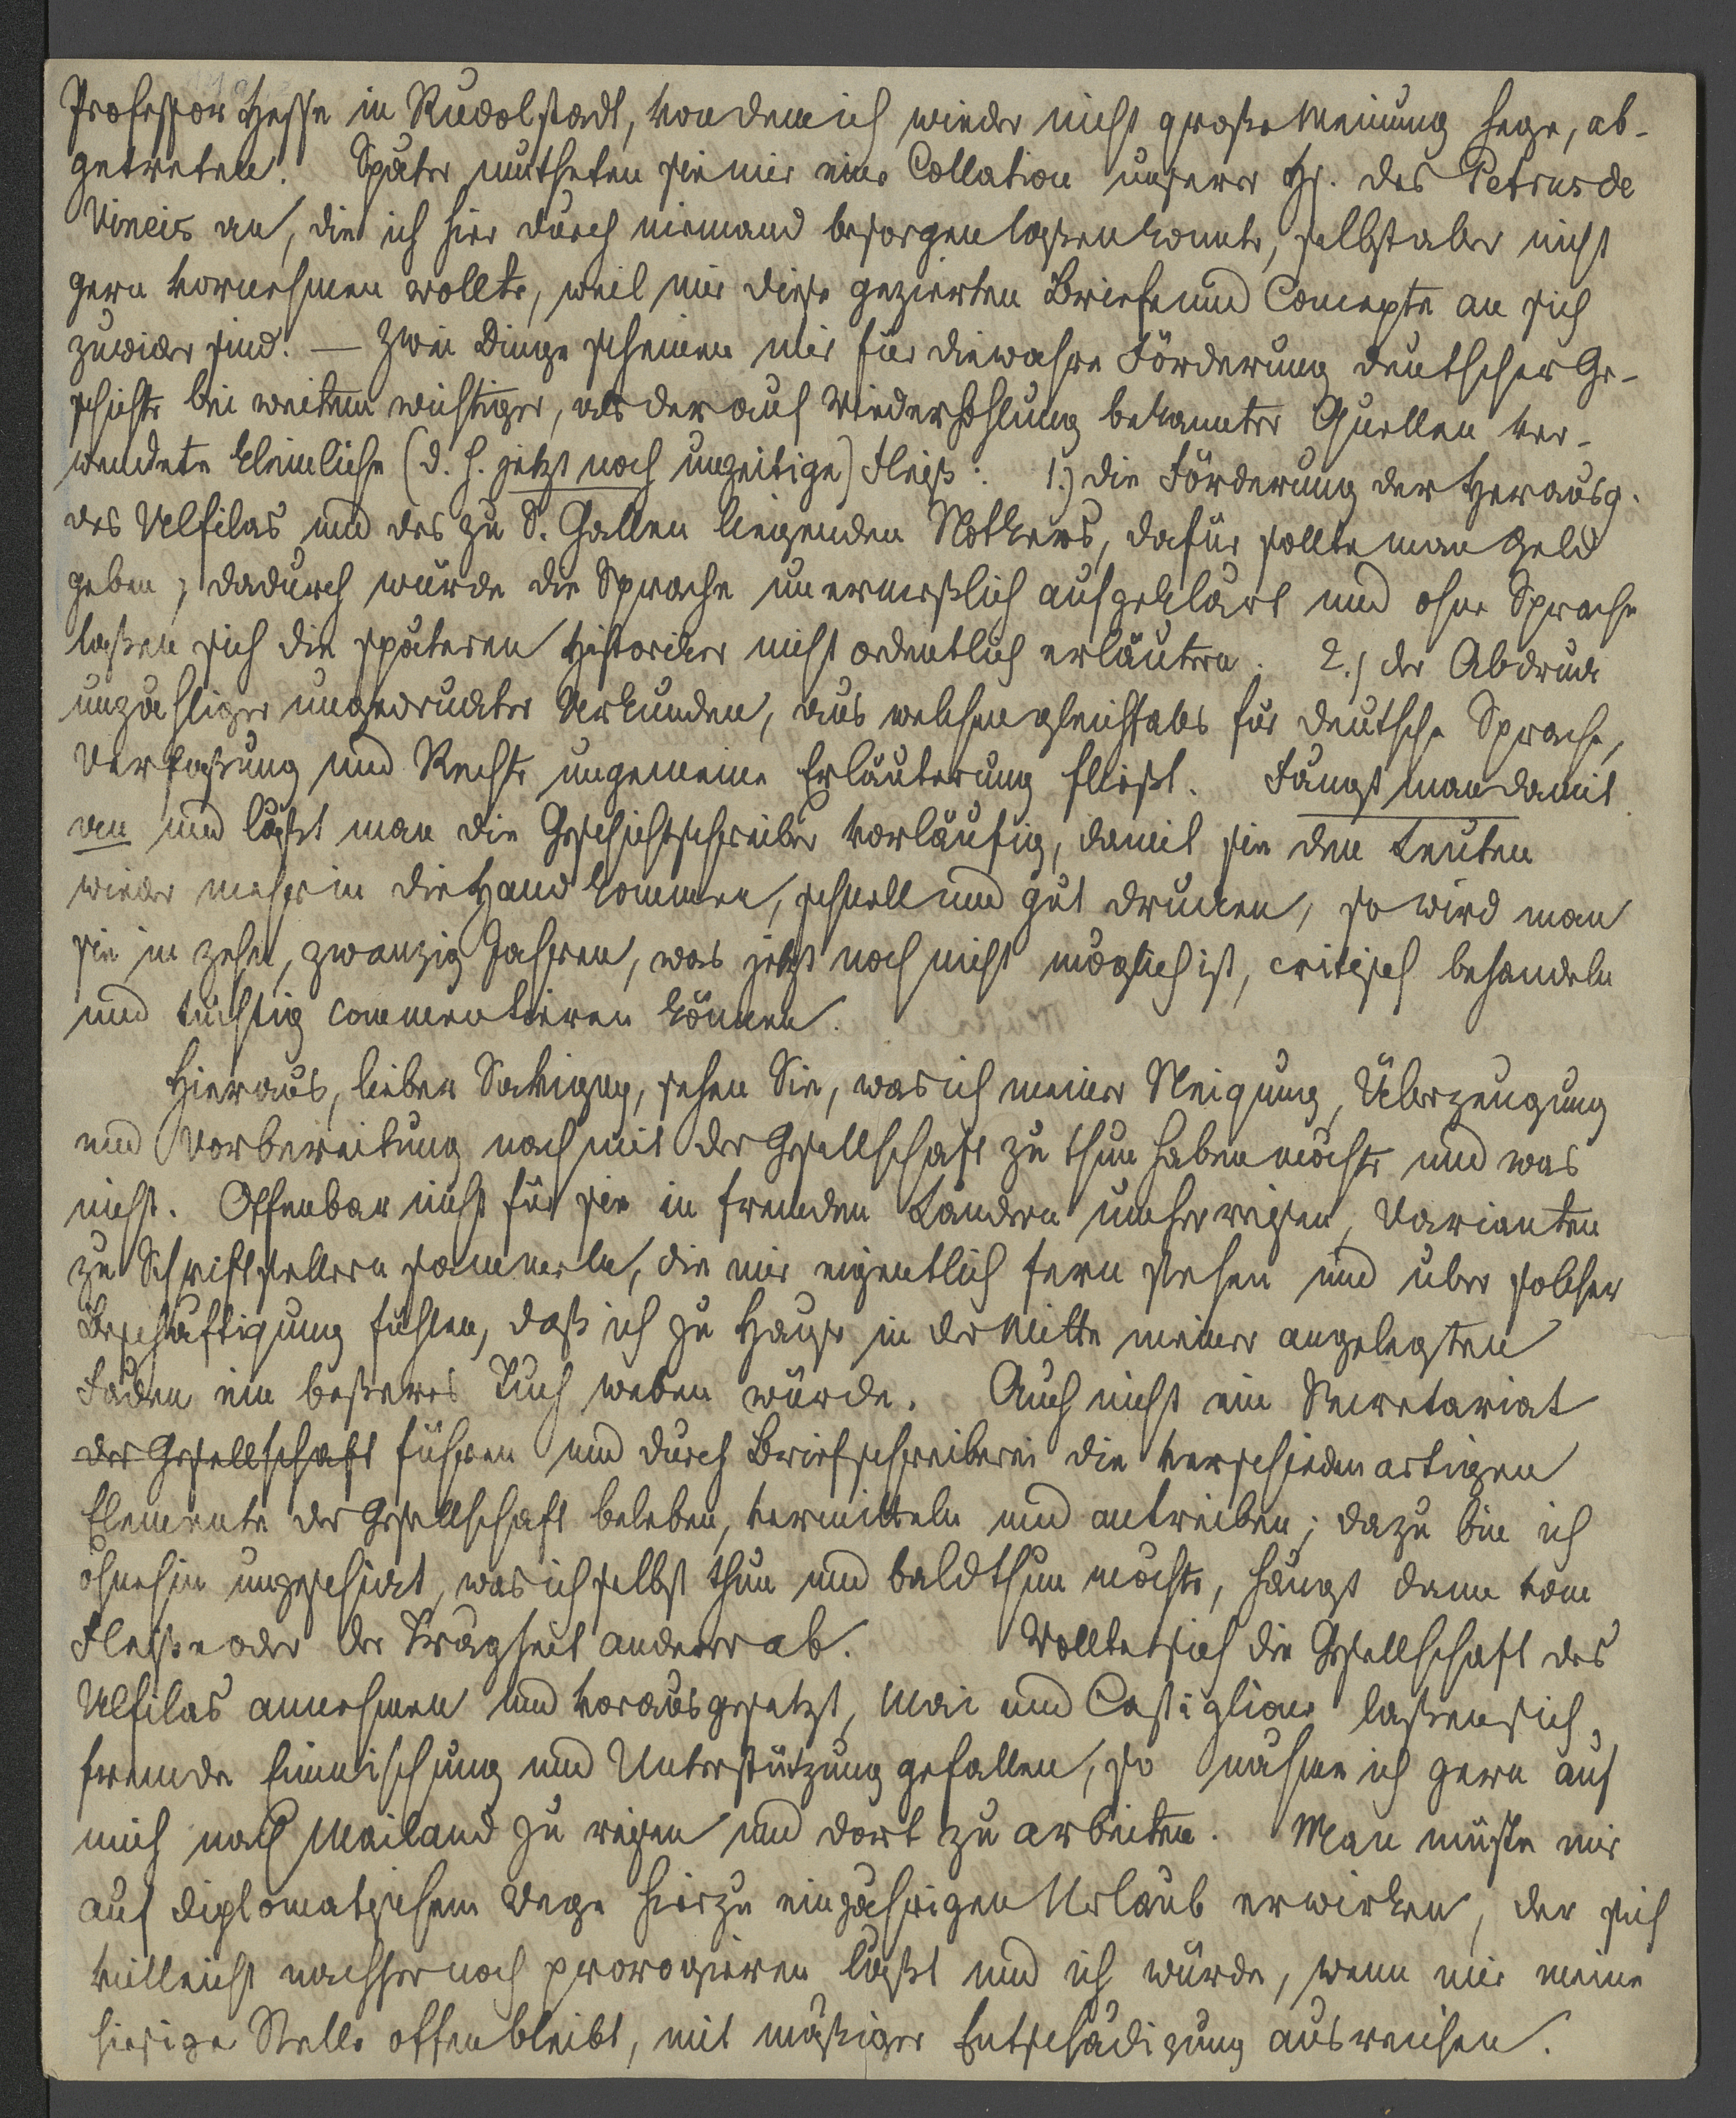 Professor Hesse in Rudolstadt, von dem ich wieder nicht große Meinung hege, ab-
getreten. Später mutheten sie mir eine Collation unserer Hs. des Petrus de
Vineis an, die ich hier durch niemand besorgen laßen konnte, selbst aber nicht
gern vornehmen wollte, weil mir diese gezierten Briefe und Concepte an sich
zuwider sind. — Zwei Dinge scheinen mir für die wahre Förderung deutscher Ge-
schichte bei weitem wichtiger, als der auf Wiederhohlung bekannter Quellen ver-
wendete kleinliche (d. h. jetzt noch unzeitige) Fleiß: 1.) die Förderung der Herausg.
des Ulfilas und des zu S. Gallen liegenden Notkers, dafür sollte man Geld
geben, dadurch würde die Sprache unermeßlich aufgeklärt und ohne Sprache
laßen sich die späteren Historiker nicht ordentlich erläutern. 2.) der Abdruck
unzähliger ungedruckter Urkunden, aus welchen gleichfals für deutsche Sprache,
Verfaßung und Rechte ungemeine Erläuterung fließt. Fängt man damit
an und läßt man die Geschichtschreiber vorläufig, damit sie den Leuten
wieder mehr in die Hand kommen, schnell und gut drucken, so wird man
sie in zehn, zwanzig Jahren, was jetzt noch nicht möglich ist, critisch behandeln
und tüchtig commentieren können.
Hieraus, lieber Savigny, sehen Sie, was ich meiner Neigung, Überzeugung
und Vorbereitung nach mit der Gesellschaft zu thun haben möchte und was
nicht. Offenbar nicht für sie in fremden Ländern umher reisen, Varianten
zu Schriftstellern sammeln, die mir eigentlich fern stehen und über solcher
Beschäftigung fühlen, daß ich zu Hause in der Mitte meiner angelegten
Fäden ein beßeres Tuch weben würde. Auch nicht ein Secretariat
der Gesellschaft führen und durch Briefschreiberei die verschiedenartigen
Elemente der Gesellschaft beleben, vermitteln und antreiben; dazu bin ich
ohnehin ungeschickt, was ich selbst thun und bald thun möchte, hängt dann vom
Fleiße oder der Trägheit anderer ab. Wollte sich die Gesellschaft des
Ulfilas annehmen und vorausgesetzt, Mai und Castiglione laßen sich
fremde Einmischung und Unterstützung gefallen, so nähme ich gern auf
mich nach Mailand zu reisen und dort zu arbeiten. Man müste mir
auf diplomatischem Wege hierzu einjährigen Urlaub erwirken, der sich
villeicht nachher noch prorogieren läßt und ich würde, wenn mir meine
hiesige Stelle offen bleibt, mit mäßiger Entschädigung ausreichen.